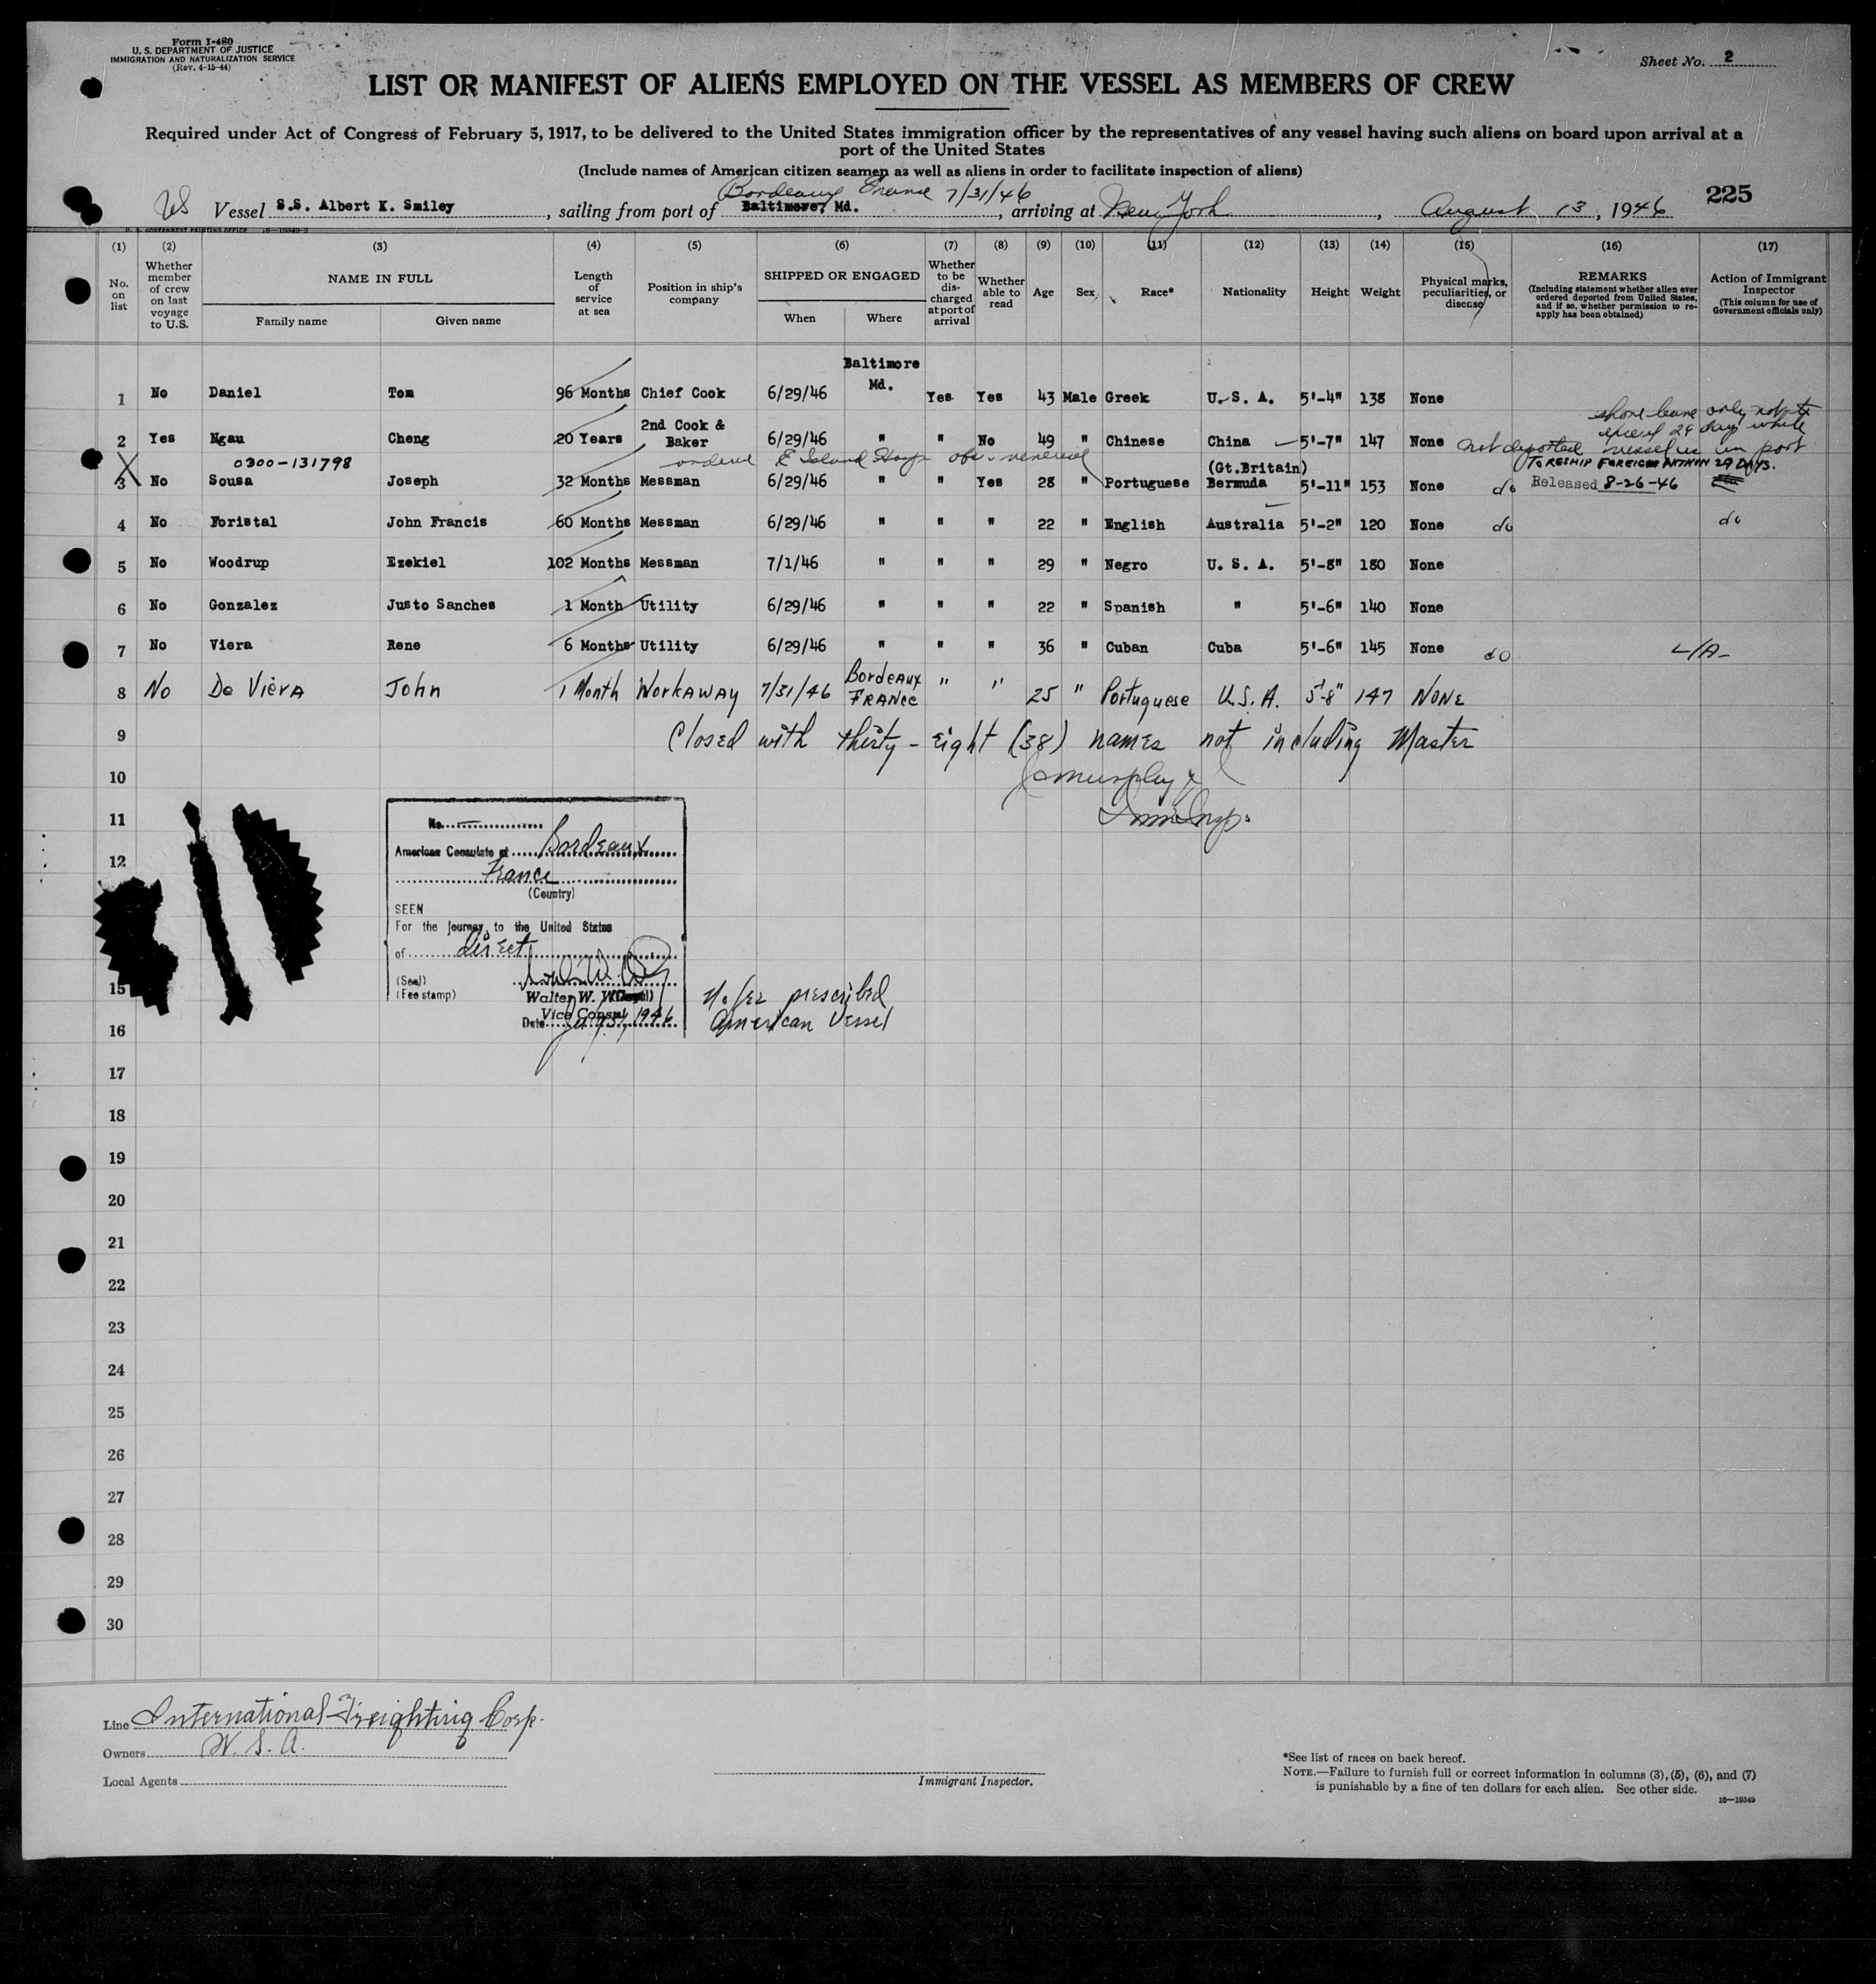 Form I-480
U. S. DEPARTMENT OF JUSTICE
IMMIGRATION AND NATURALIZATION SERVICE
(Rev. 4-15-44)
Sheet No. 2
LIST OR MANIFEST OF ALIENS EMPLOYED ON THE VESSEL AS MEMBERS OF CREW
Required under Act of Congress of February 5, 1917, to be delivered to the United States immigration officer by the representatives of any vessel having such aliens on board upon arrival at a
port of the United States
(Include names of American citizen seamen as well as aliens in order to facilitate inspection of aliens)
Bordeaux France 7/31/46
US Vessel S.S. Albert K. Smiley, sailing from port of Baltimore, Md., arriving at New York, August 13, 1946
225
(1) (2) (3) (4) (5) (6) (7) (8) (9) (10) (11) (12) (13) (14) (15) (16) (17)
No. on list
Whether member of crew on last voyage to U.S.
NAME IN FULL
Family name Given name
Length of service at sea
Position in ship's company
SHIPPED OR ENGAGED
When Where
Whether to be discharged at port of arrival
Whether able to read
Age Sex Race* Nationality Height Weight
Physical marks, peculiarities, or disease
REMARKS
(Including statement whether alien ever ordered deported from United States, and if so, whether permission to re-apply has been obtained)
Action of Immigrant Inspector
(This column for use of Government officials only)
1 No Daniel Tom 96 Months Chief Cook 6/29/46 Baltimore Md. Yes Yes 43 Male Greek U. S. A. 5'-4" 138 None
shore leave only not to
exceed 29 days while
2 Yes Ngau Cheng 20 Years 2nd Cook & Baker 6/29/46 " " No 49 " Chinese China 5'-7" 147 None not deported vessel is in port
0300-131798 ordered E Island Hosp venereal
TO RESHIP FOREIGN WITHIN 29 DAYS.
3 No Sousa Joseph 32 Months Messman 6/29/46 " " Yes 28 " Portuguese (Gt.Britain) Bermuda 5'-11" 153 None do Released 8-26-46
4 No Foristal John Francis 60 Months Messman 6/29/46 " " " 22 " English Australia 5'-2" 120 None do do
5 No Woodrup Ezekiel 102 Months Messman 7/1/46 " " " 29 " Negro U. S. A. 5'-8" 180 None
6 No Gonzalez Justo Sanches 1 Month Utility 6/29/46 " " " 22 " Spanish " 5'-6" 140 None
7 No Viera Rene 6 Months Utility 6/29/46 " " " 36 " Cuban Cuba 5'-6" 145 None do
8 No De Viera John 1 Month Workaway 7/31/46 Bordeaux France " " 25 " Portuguese U.S.A. 5'-8" 147 None
9 Closed with thirty-eight (38) names not including Master
10
11
12
No.
American Consulate at Bordeaux
France
(Country)
SEEN
For the journey to the United States
of direct
(Seal)
(Fee stamp)
Walter W.
Vice Consul
Date July 31, 1946
No fee prescribed
American Vessel
15
16
17
18
19
20
21
22
23
24
25
26
27
28
29
30
Line International Freighting Corp.
Owners W. S. A.
Local Agents
Immigrant Inspector.
*See list of races on back hereof.
NOTE.—Failure to furnish full or correct information in columns (3), (5), (6), and (7)
is punishable by a fine of ten dollars for each alien. See other side.
16—19349